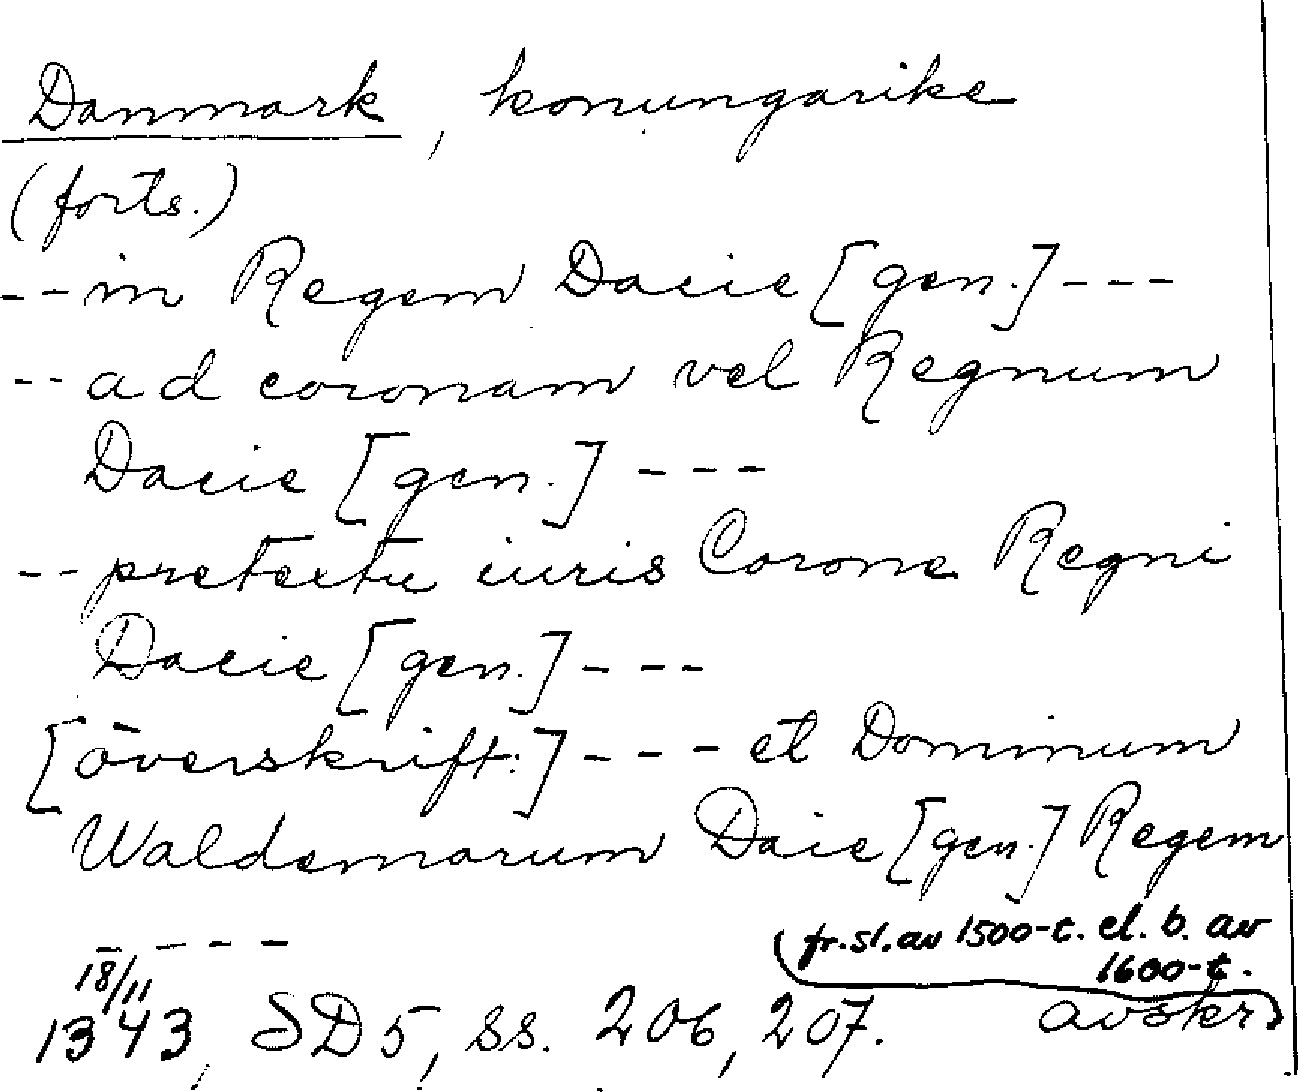 Danmark, konungarike
(forts.)
--in Regem Dacie [gen.]---
--ad coronam vel Regnum
Dacie [gen.]---
--pretextu iuris Corone Regni
Dacie [gen.]---
[överskrift:]---et Dominum
Waldemarum Dacie [gen.] Regem
----
(fr. sl. av 1500-t. el. b. av
1600-t.
18/11
1343, SD 5, ss. 206, 207. avskr)